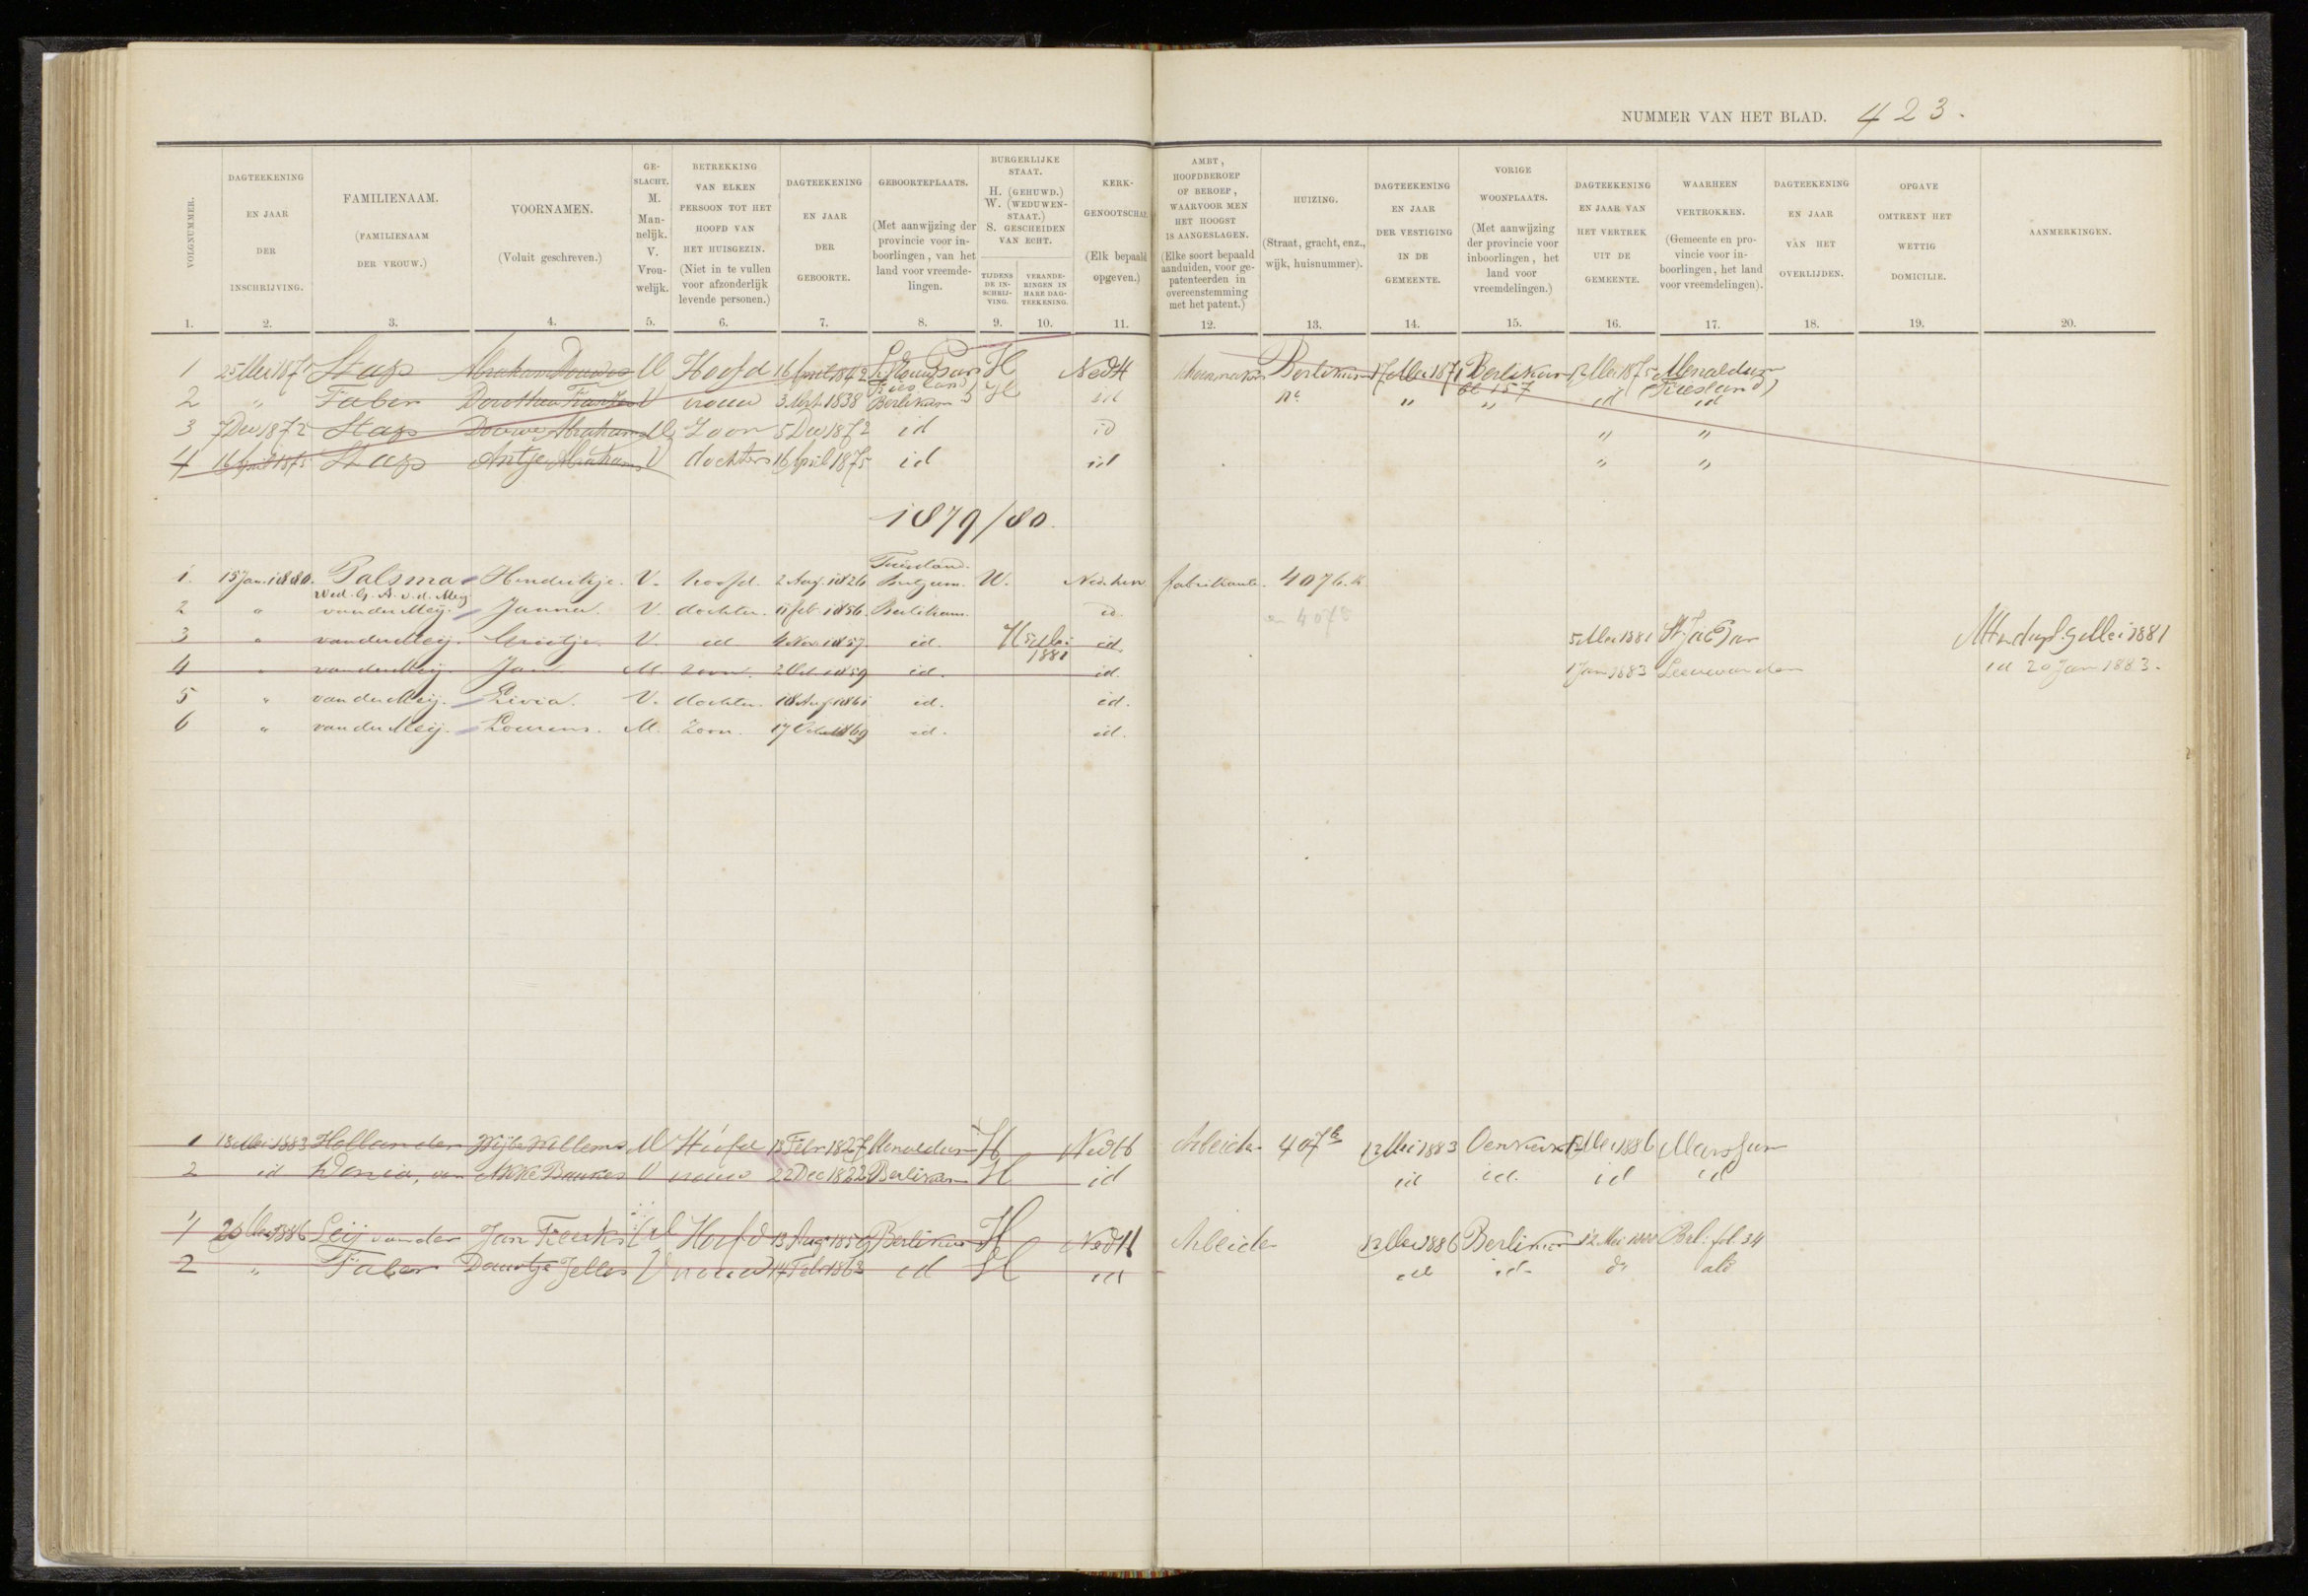 NUMMER VAN HET BLAD. 423.
VOLGNUMMER. 1.
DAGTEEKENING EN JAAR DER INSCHRIJVING. 2.
FAMILIENAAM. (FAMILIENAAM DER VROUW.) 3.
VOORNAMEN. (Voluit geschreven.) 4.
GE-SLACHT. M. Man-nelijk. V. Vrou-welijk. 5.
BETREKKING VAN ELKEN PERSOON TOT HET HOOFD VAN HET HUISGEZIN. (Niet in te vullen voor afzonderlijk levende personen.) 6.
DAGTEEKENING EN JAAR DER GEBOORTE. 7.
GEBOORTEPLAATS. (Met aanwijzing der provincie voor in-boorlingen, van het land voor vreemde-lingen. 8.
BURGERLIJKE STAAT. H. (GEHUWD.) W. (WEDUWEN-STAAT.) S. GESCHEIDEN VAN ECHT.
TIJDENS DE IN-SCHRIJ-VING. 9.
VERANDE-RINGEN IN HARE DAG-TEEKENING. 10.
KERK-GENOOTSCHAP (Elk bepaald opgeven.) 11.
AMBT, HOOFDBEROEP OF BEROEP, WAARVOOR MEN HET HOOGST IS AANGESLAGEN. (Elke soort bepaald aanduiden, voor ge-patenteerden in overeenstemming met het patent.) 12.
HUIZING. (Straat, gracht, enz., wijk, huisnummer). 13.
DAGTEEKENING EN JAAR DER VESTIGING IN DE GEMEENTE. 14.
VORIGE WOONPLAATS. (Met aanwijzing der provincie voor inboorlingen, het land voor vreemdelingen.) 15.
DAGTEEKENING EN JAAR VAN HET VERTREK UIT DE GEMEENTE. 16.
WAARHEEN VERTROKKEN. (Gemeente en pro-vincie voor in-boorlingen, het land voor vreemdelingen). 17.
DAGTEEKENING EN JAAR VAN HET OVERLIJDEN. 18.
OPGAVE OMTRENT HET WETTIG DOMICILIE. 19.
AANMERKINGEN. 20.
1 Stap Abraham Douwes M Hoofd 16 April 1842 Friesland H Ned H Berlikum Berlikum bl 157 12 Mei 1875 Menaldum (Friesland)
2 " Faber V vrouw 3 Mrt 1838 Berlikum H id " " id id
3 7 Dec 1872 Stap Douwe Abrahams M Zoon 5 Dec 1872 id id " "
4 16 April 1875 Stap Antje Abrahams V dochter 16 April 1875 id id " "
1879/80.
1. 15 Jan. 1880. Palsma Wed. v. d. Meij Hendrikje. V. hoofd. 2 Aug. 1826 Friesland. W. Ned. herv. fabrikante. 407
2 " van der Meij. Janna. V. dochter. 11 feb. 1856. Berlikum. id.
3 " van der Meij. Grietje. V. id. 4 Nov. 1857. id. H 5 Mei 1881 id. 5 Mei 1881 St Jac Par 9 Mei 1881
4 " van der Meij. Jan. M. zoon. 1859 id. id. 1 Jan 1883 Leeuwarden id 20 Jan 1883.
5 " van der Meij. Livia. V. dochter. 18 Aug 1861 id. id.
6 " van der Meij. Lourens. M. Zoon. 17 1869 id. id.
1 18 Mei 1883 Hollander Wijbe Willems M Hoofd 13 Febr 1827 Menaldum H Ned H Arbeider 407 12 Mei 1883 Oenkerk 12 Mei 1886 Marssum
2 id Wonia, van Akke Baukes V vrouw 22 Dec 1822 Berlikum H id id id. id id
1 20 Mei 1886 Leij van der Jan M Hoofd 13 Aug 1859 Berlikum H Ned H Arbeider 12 Mei 1886 Berlikum 12 Mei 1888 Berl. fol. 34
2 " Faber Jelles V vrouw 14 Febr 1863 id H id id id. do als